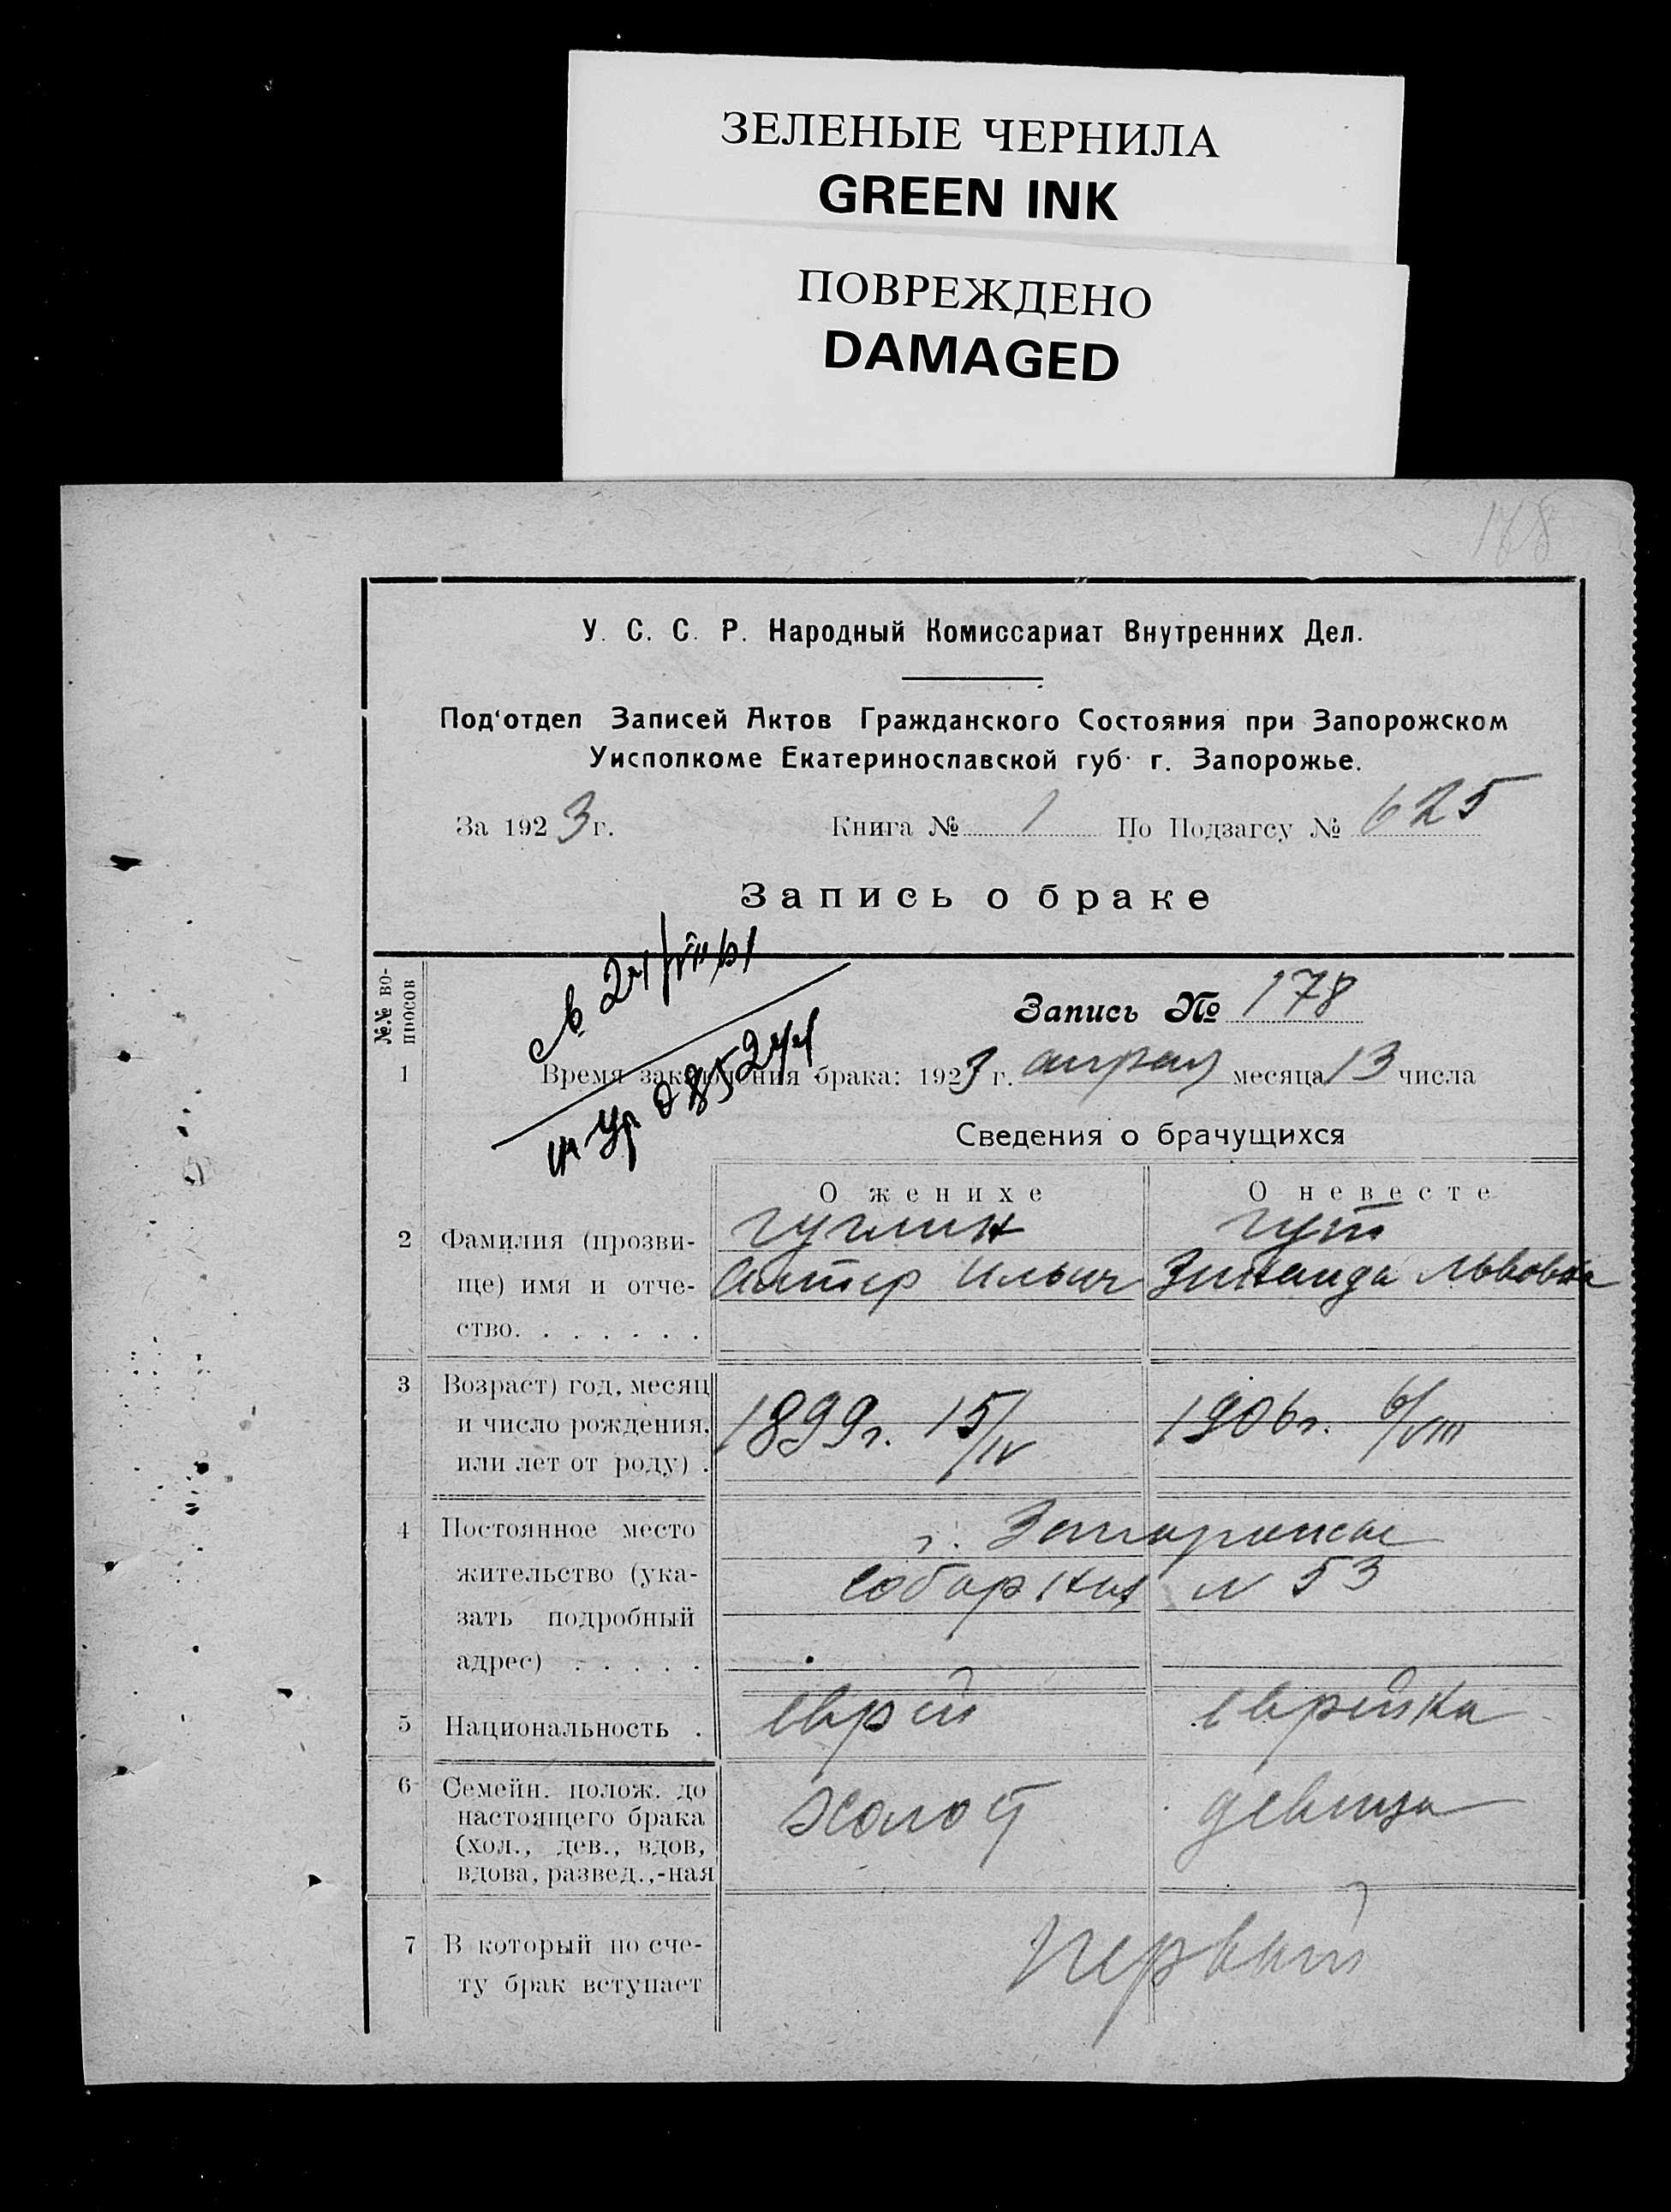 ЗЕЛЕНЫЕ ЧЕРНИЛА
GREEN INK
ПОВРЕЖДЕНО
DAMAGED
У. С. С. Р. Народный Комиссариат Внутренних Дел.
Под‘отдел Записей Актов Гражданского Состояния при Запорожском
Уисполкоме Екатеринославской губ. г. Запорожье.
За 1923 г. Книга № 1 По Подзагсу № 625
Запись о браке
№№ во-
просов
Запись № 178
1 Время заключения брака: 1923 г. апрель месяца 13 числа
Сведения о брачущихся
О женихе О невесте
2 Фамилия (прозви- Гуглин Гут
ще) имя и отче- Ильич Зинаида Львовна
ство. . . . . . .
3 Возраст) год, месяц
и число рождения, 1899г. 15/IV 1906г. 6/VIII
или лет от роду) .
4 Постоянное место г. Запорожье
жительство (ука- Соборная № 53
зать подробный
адрес) . . . . .
5 Национальность . еврей еврейка
6 Семейн. полож. до
настоящего брака холост девица
(хол., дев., вдов,
вдова, развед.,-ная
7 В который по сче- первый
ту брак вступает